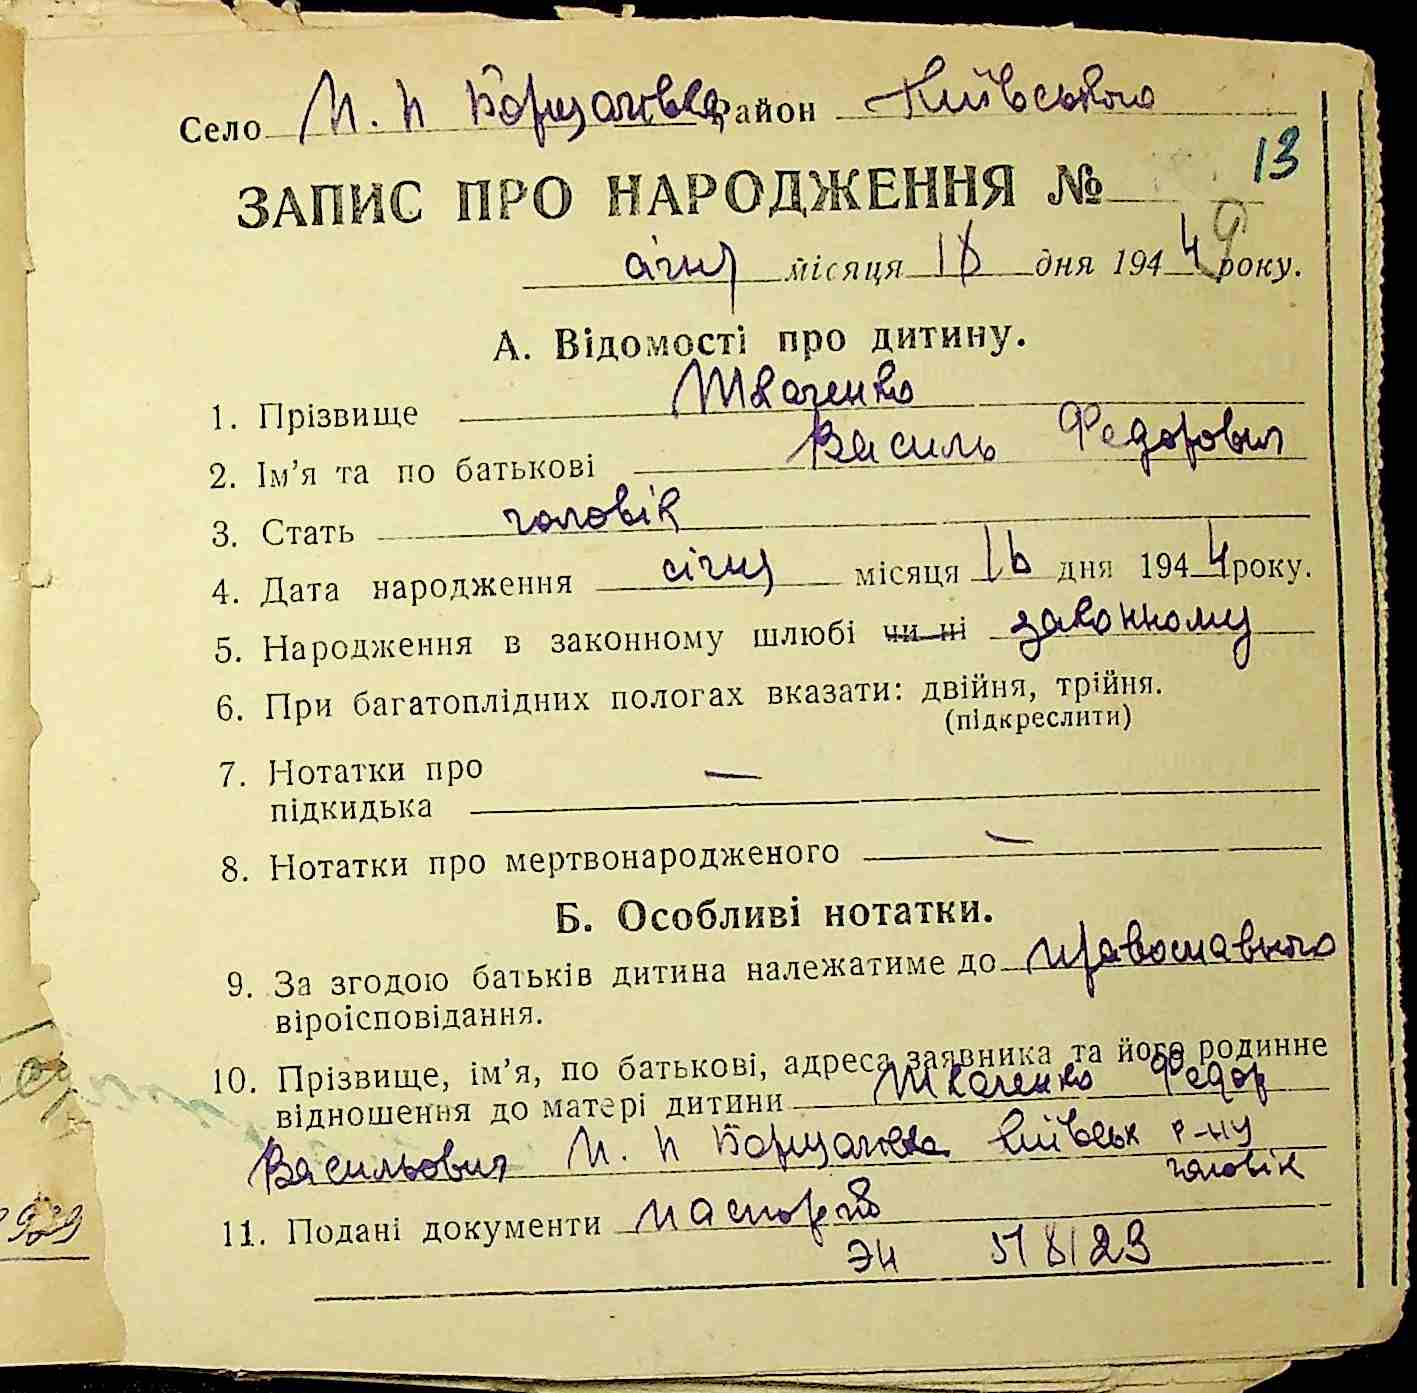 Село П. П Борщагівка район Київського
13
ЗАПИС ПРО НАРОДЖЕННЯ №
січня місяця 16 дня 1944 року.
А. Відомості про дитину.
1. Прізвище Ткаченко
2. Ім'я та по батькові Василь Федорович
3. Стать чоловік
4. Дата народження січня місяця 16 дня 1944 року.
5. Народження в законному шлюбі чи ні законному
6. При багатоплідних пологах вказати: двійня, трійня.
(підкреслити)
7. Нотатки про —
підкидька
8. Нотатки про мертвонародженого —
Б. Особливі нотатки.
9. За згодою батьків дитина належатиме до православного
віроісповідання.
10. Прізвище, ім'я, по батькові, адреса заявника та його родинне
відношення до матері дитини Ткаченко Федор
Васильович П. П Борщагівка Київськ р-ну
чоловік
11. Подані документи паспорт
ЭН 518123